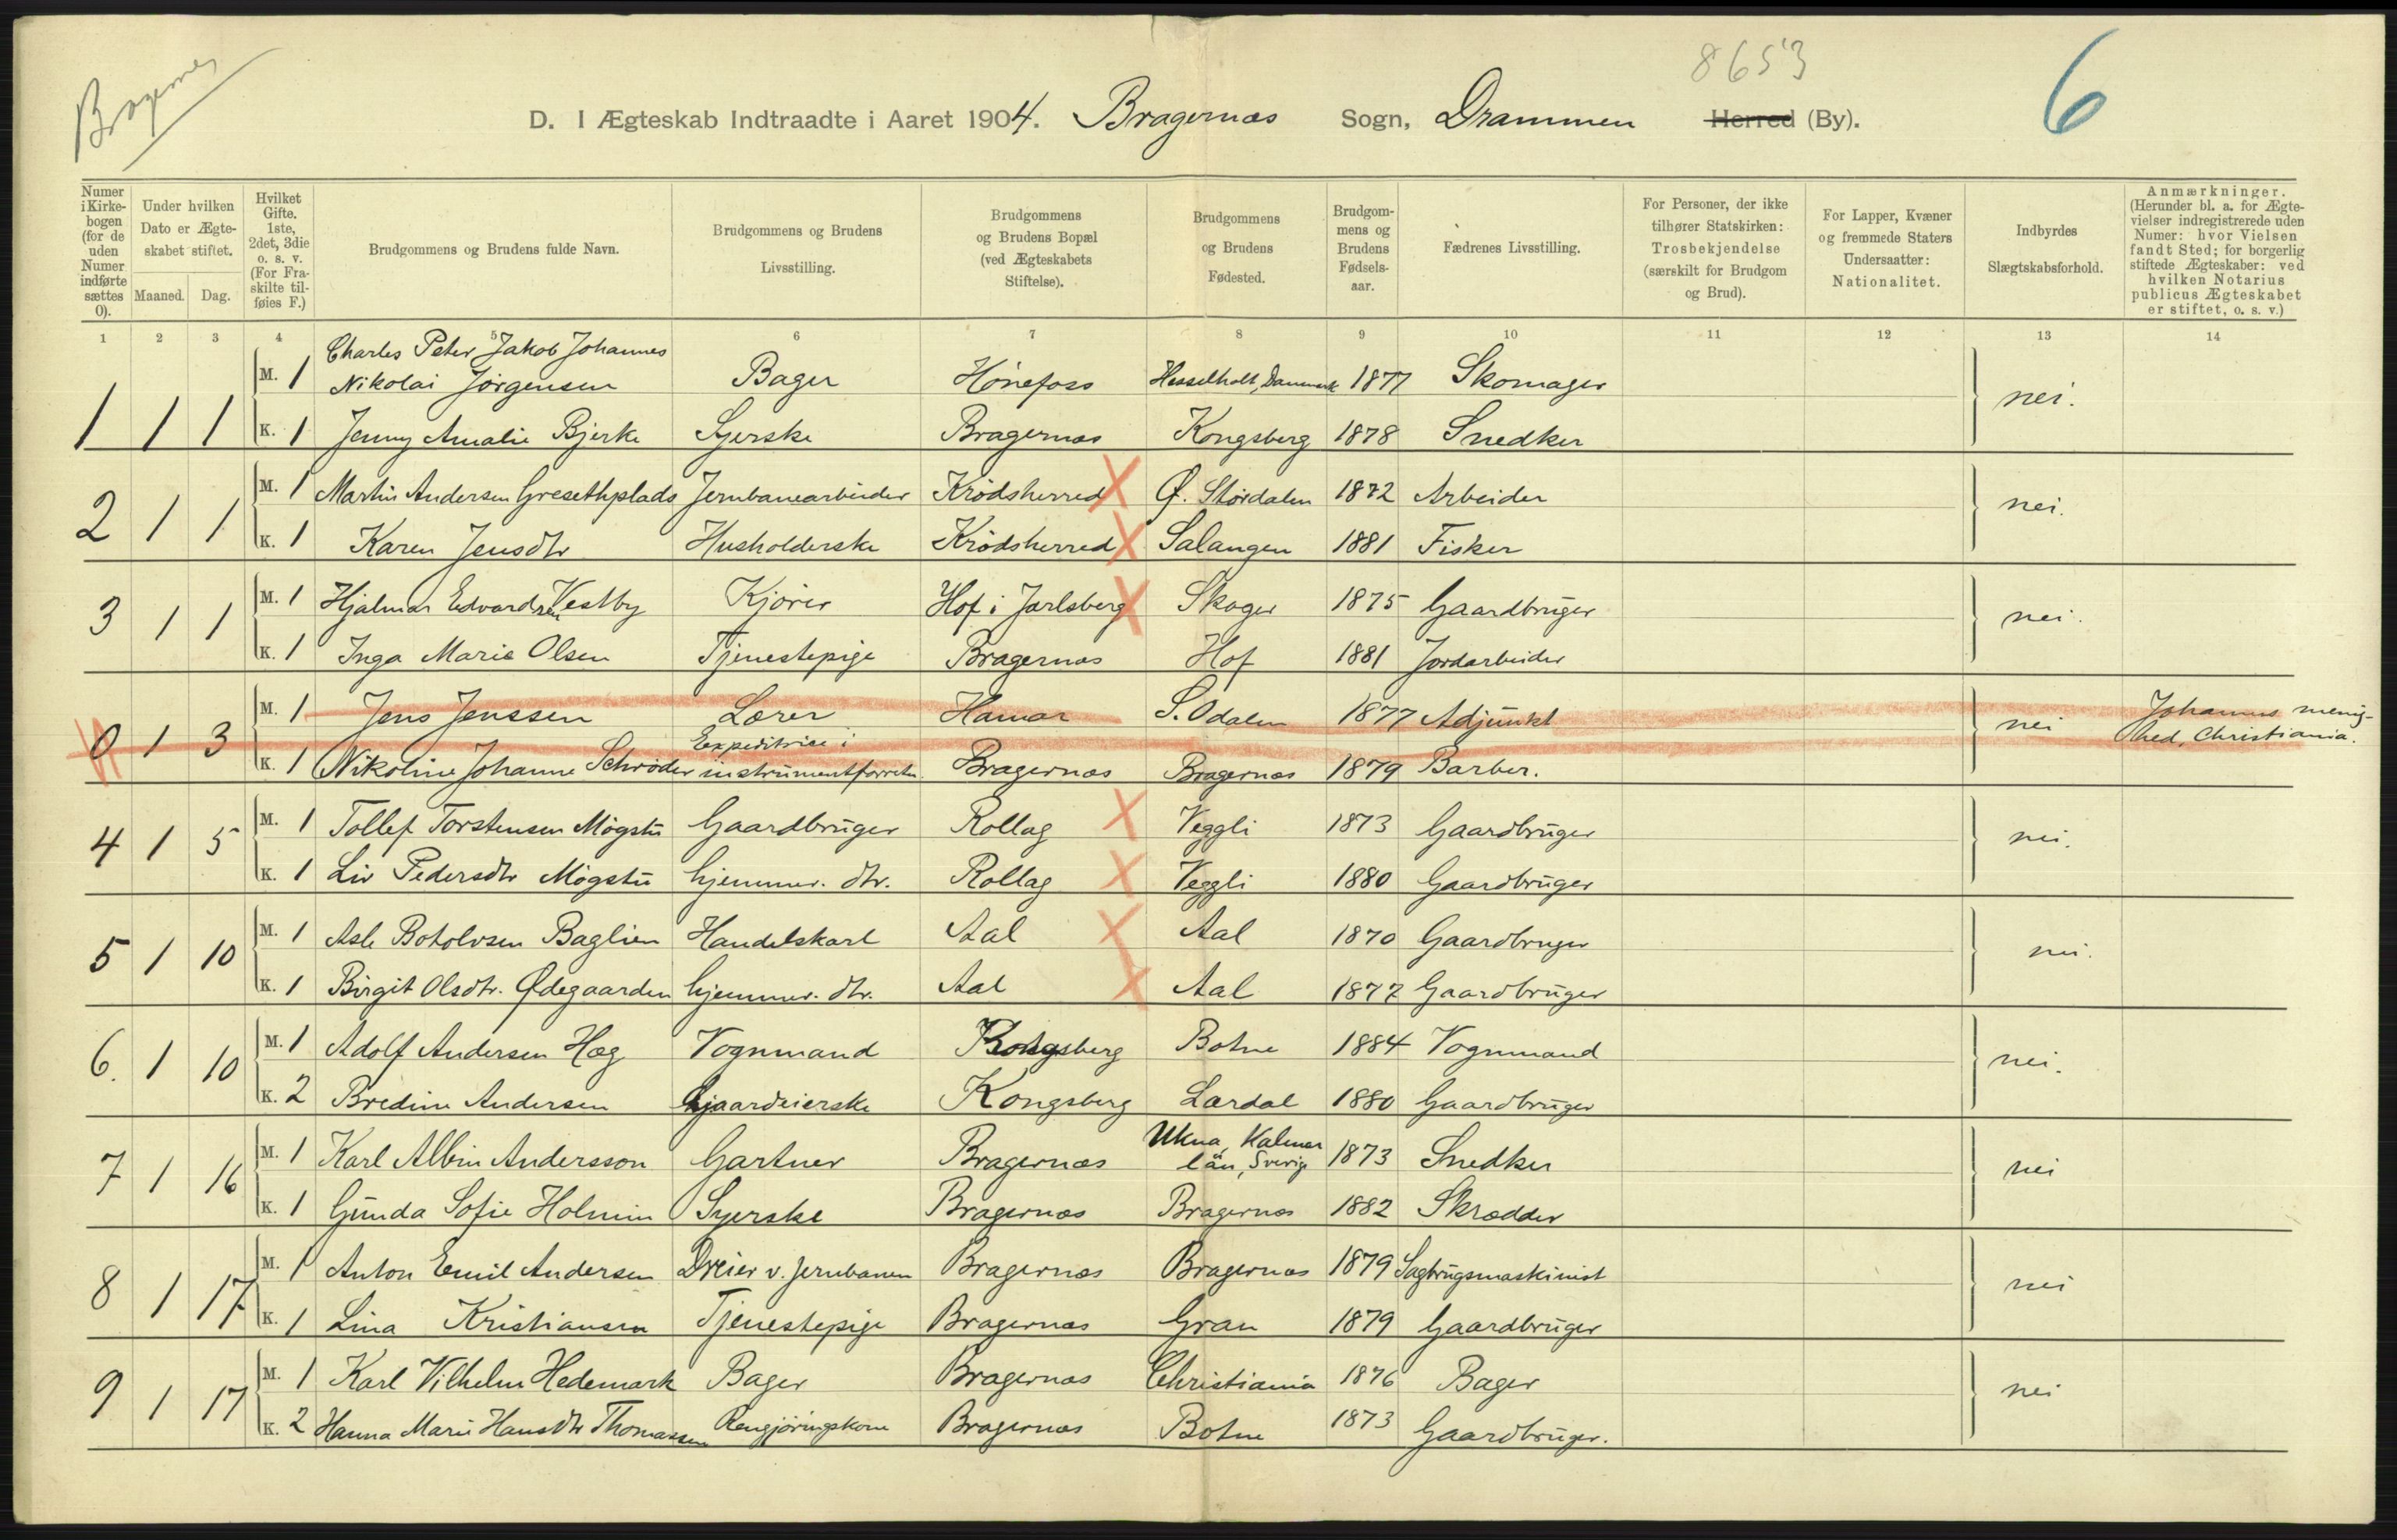 8653
Bragernes
6
D. I Ægteskab Indtraadte i Aaret 1904. Bragernæs Sogn, Drammen Herred (By).
Numer i Kirkebogen (for de uden Numer indførte sættes 0). | Under hvilken Dato er Ægteskabet stiftet. Maaned. Dag. | Hvilket Gifte. 1ste, 2det, 3die o. s. v. (For Fraskilte tilføies F.) | Brudgommens og Brudens fulde Navn. | Brudgommens og Brudens Livsstilling. | Brudgommens og Brudens Bopæl (ved Ægteskabets Stiftelse). | Brudgommens og Brudens Fødested. | Brudgommens og Brudens Fødselsaar. | Fædrenes Livsstilling. | For Personer, der ikke tilhører Statskirken: Trosbekjendelse (særskilt for Brudgom og Brud). | For Lapper, Kvæner og fremmede Staters Undersaatter: Nationalitet. | Indbyrdes Slægtskabsforhold. | Anmærkninger. (Herunder bl. a. for Ægtevielser indregistrerede uden Numer: hvor Vielsen fandt Sted; for borgerlig stiftede Ægteskaber: ved hvilken Notarius publicus Ægteskabet er stiftet, o. s. v.)
1 2 3 4 5 6 7 8 9 10 11 12 13 14
1 1 1 M. 1 Charles Peter Jakob Johannes Nikolai Jørgensen Bager Hønefoss Hesselholt, Danmark 1877 Skomager nei.
K. 1 Jenny Amalie Bjerke Syerske Bragernæs Kongsberg 1878 Snedker
2 1 1 M. 1 Martin Andersen Gresethplads Jernbanearbeider Krødsherred X Ø. Stördalen 1872 Arbeider nei.
K. 1 Karen Jensdtr Husholderske Krødsherred X Salangen 1881 Fisker
3 1 1 M. 1 Hjalmar Edvardsen Vestby Kjører Hof i Jarlsberg X Skoger 1875 Gaardbruger nei.
K. 1 Inga Marie Olsen Tjenestepige Bragernæs Hof 1881 Jordarbeider
0 1 3 M. 1 Jens Jenssen Lærer Hamar S. Odalen 1877 Adjunkt nei Johannes menighed, Christiania.
K. 1 Nikoline Johanne Schrøder Expeditrice i instrumentforretn. Bragernæs Bragernæs 1879 Barber.
4 1 5 M. 1 Tollef Torstensen Møgstu Gaardbruger Rollag X Veggli 1873 Gaardbruger nei.
K. 1 Liv Pedersdtr Møgstu hjemmev. dtr. Rollag X Veggli 1880 Gaardbruger
5 1 10 M. 1 Asle Botolvsen Baglien Handelskarl Aal X Aal 1870 Gaardbruger nei.
K. 1 Birgit Olsdtr. Ødegaarden hjemmev. dtr. Aal X Aal 1877 Gaardbruger
6. 1 10 M. 1 Adolf Andersen Hæg Vognmand Kongsberg Botne 1884 Vognmand nei.
K. 2 Bredine Andersen Gjaardeierske Kongsberg Lardal 1880 Gaardbruger
7 1 16 M. 1 Karl Albin Andersson Gartner Bragernæs Ukna, Kalmar län, Sverig 1873 Snedker nei
K. 1 Gunda Sofie Holmin Syerske Bragernæs Bragernæs 1882 Skrædder
8 1 17 M. 1 Anton Emil Andersen Dreier v. Jernbanen Bragernæs Bragernæs 1879 Sagbrugsmaskinist nei
K. 1 Lina Kristiansen Tjenestepige Bragernæs Gran 1879 Gaardbruger
9 1 17 M. 1 Karl Vilhelm Hedemark Bager Bragernæs Christiania 1876 Bager nei
K. 2 Hanna Marie Hansdtr Thomassen Rengjøringskone Bragernæs Botne 1873 Gaardbruger.